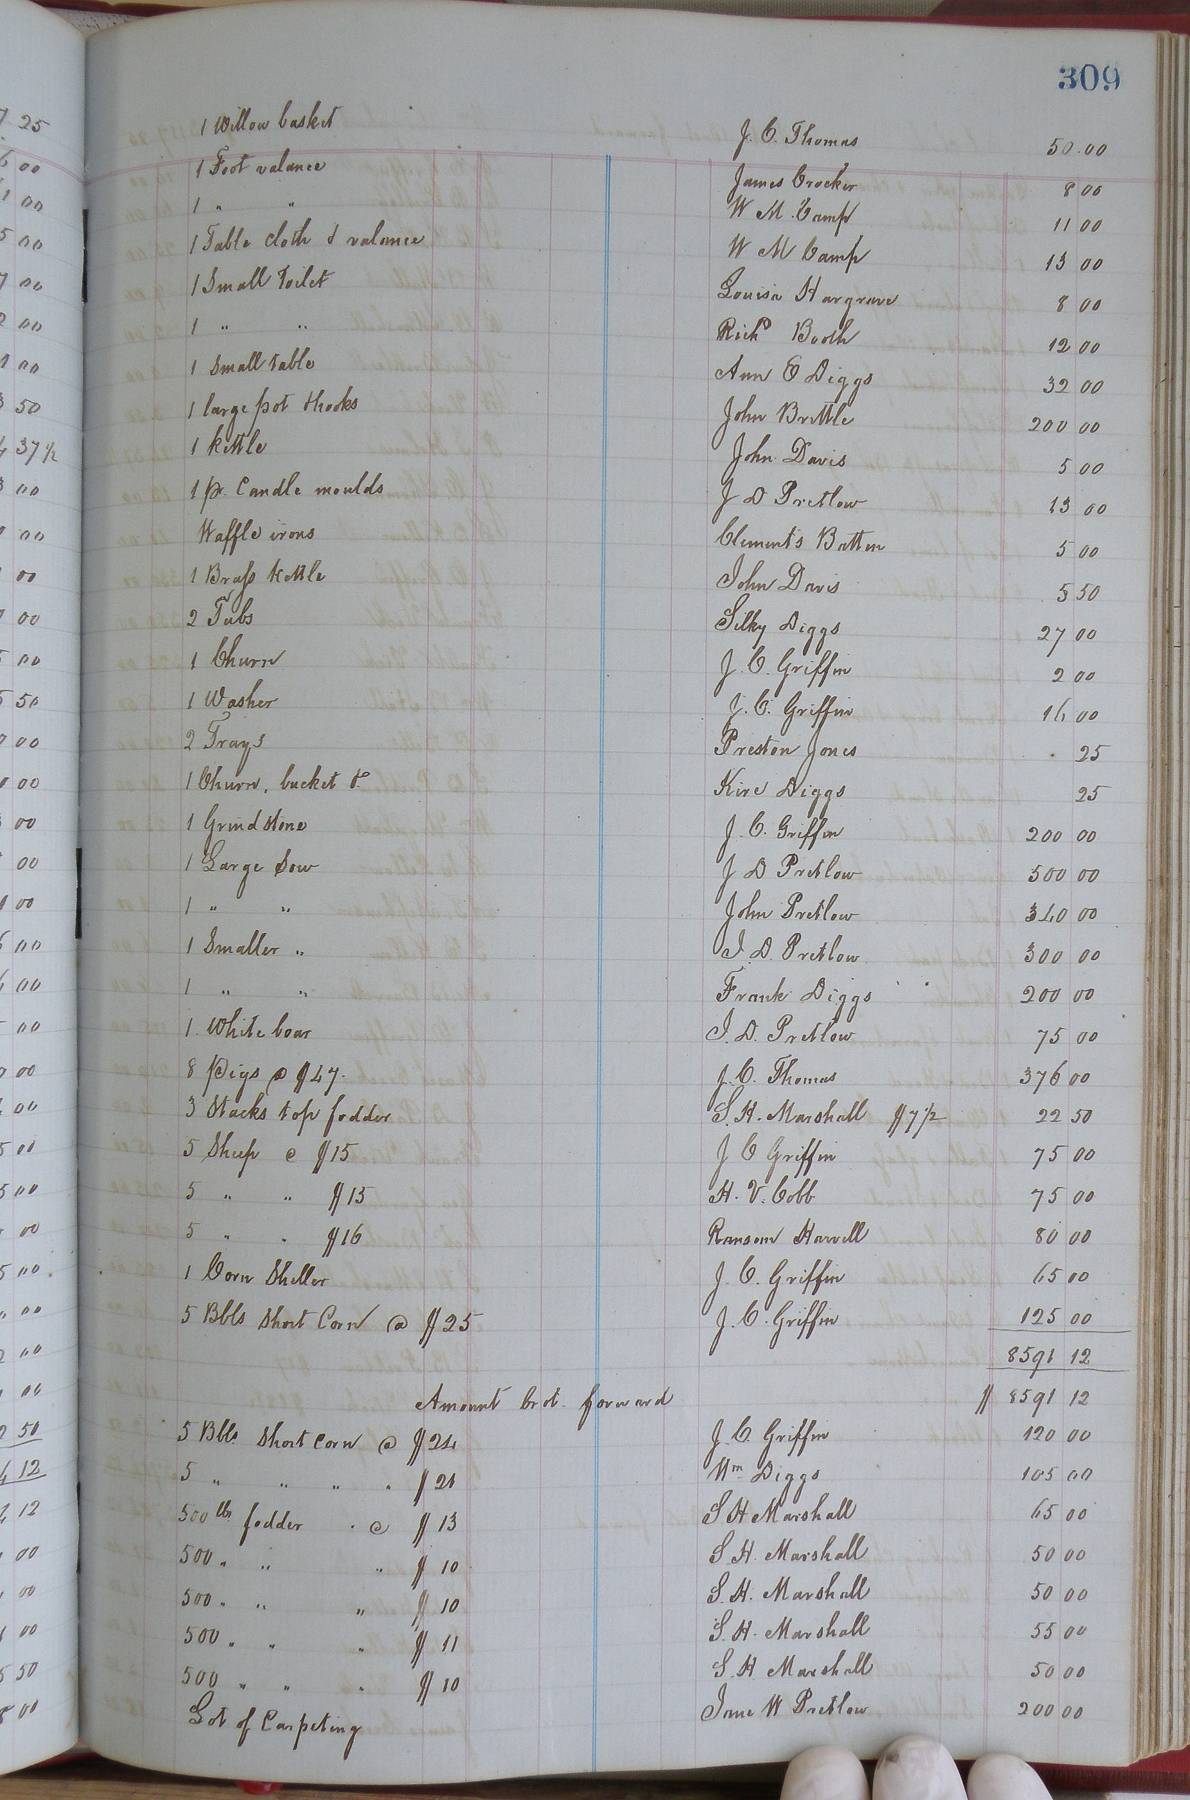 309
1 Willow basket J. C. Thomas 50.00
1 Foot valance James Crocker 8 00
1 " " W M. Camp 11 00
1 Table cloth & valance W M Camp 13 00
1 Small Toilet Louisa Hargrave 8 00
1 " " Richd Booth 12 00
1 Small table Ann E Diggs 32 00
1 large pot & hooks John Brittle 200 00
1 kettle John Davis 5 00
1 pr. Candle moulds J D Pretlow 13 00
Waffle irons Clements Britten 5 00
1 Brass kettle John Davis 5 50
2 Tubs Silky Diggs 27 00
1 Churn J. C. Griffin 2 00
1 Washer J. C. Griffin 16 00
2 Trays Preston Jones 25
1 Churn, bucket & Kire Diggs 25
1 Grindstone J. C. Griffin 200 00
1 Large Sow J D Pretlow 500 00
1 " " John Pretlow 340 00
1 Smaller " J. D. Pretlow 300 00
1 " " Frank Diggs 200 00
1. White boar J. D. Pretlow 75 00
8 Pigs @ $47. J. C. Thomas 376 00
3 Stacks top fodder S. H. Marshall $7 1/2 22 50
5 Sheep @ $15 J C Griffin 75 00
5 " " $15 H. V. Cobb 75 00
5 " " $16 Ransom Harvell 80 00
1 Corn Sheller J. C. Griffin 65 00
5 Bbls Short Corn @ $25 J. C. Griffin 125 00
8591 12
Amount brot. forward $ 8591 12
5 Bbls. Short corn @ $24 J. C. Griffin 120 00
5 " " " " $21 Wm Diggs 105 00
500 lbs fodder . @ $13 S H Marshall 65 00
500 " " " $10 S. H. Marshall 50 00
500 " " " $10 S. H. Marshall 50 00
500 " " " $11 S. H. Marshall 55 00
500 " " " $10 S. H Marshall 50 00
Lot of Carpeting Jane W Pretlow 200 00